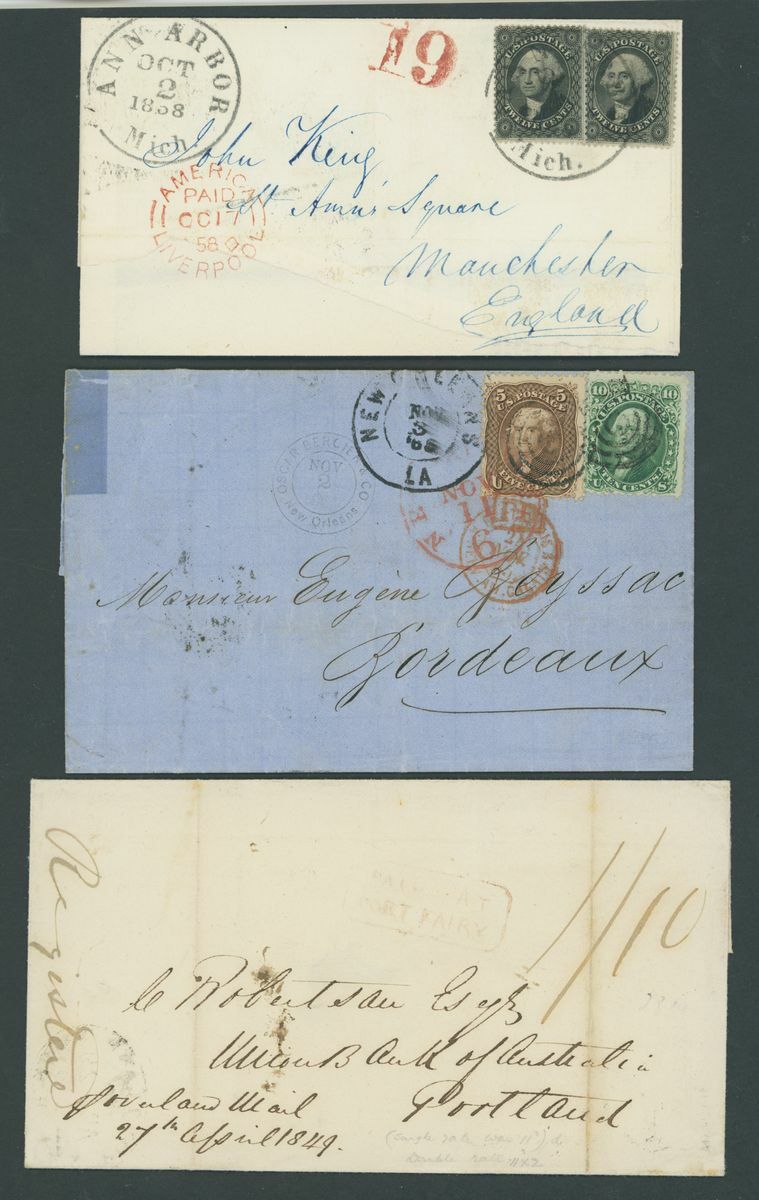 ANN ARBOR
OCT
2
1858
Mich.
19
U.S. POSTAGE
TWELVE CENTS
U.S. POSTAGE
TWELVE CENTS
Mich.
John King
St Ann's Square
Manchester
England
AMERIC
PAID
OC 17
58
LIVERPOOL
NEW ORLEANS
NOV
3
LA
5 5
U.S. POSTAGE
FIVE CENTS
10 10
U.S. POSTAGE
TEN CENTS
OSCAR BERCIER & CO
NOV
2
New Orleans
NOV
6
Monsieur Eugène Reyssac
Bordeaux
Registered
PAID AT
PORT FAIRY
1/10
C Robertson Esqr
Union Bank of Australia
Portland
Overland Mail
27th April 1849.
(Single rate was 11d)
Double rate 11x2